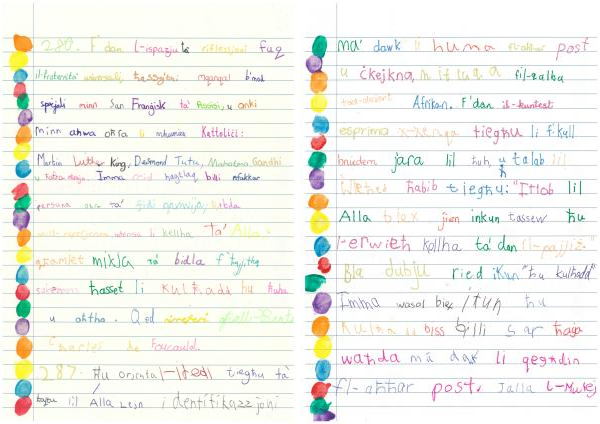 286. F'dan l-ispazju ta' riflessjoni fuq
il-fraternità universali, ħassejtni mqanqal b'mod
speċjali minn San Franġisk ta' Assisi, u anki
minn aħwa oħra li mhumiex Kattoliċi:
Martin Luther King, Desmond Tutu, Mahatma Gandhi
u ħafna oħrajn. Imma rrid nagħlaq billi nfakkar
persuna oħra ta' fidi qawwija, li
intensa li kellha ta' Alla,
għamlet mixja ta' bidla f'ħajjitha
sakemm ħasset li kulħadd hu ħuha
u oħtha. Qed nirreferi għall-Beatu
Charles de Foucauld.
287. Hu orjenta l-ħsieb tiegħu ta'
lil Alla lejn identifikazzjoni
ma' dawk li huma fl-aħħar post
u ċkejkna, mitluqa fil-qalba
tad-deżert Afrikan. F'dan il-kuntest
esprima x-xewqa tiegħu li f'kull
bniedem jara lil ħuh, u talab lil
wieħed ħabib tiegħu: "Itlob lil
Alla biex jien inkun tassew ħu
l-erwieħ kollha ta' dan il-pajjiż".
Bla dubju ried ikun "ħu kulħadd"
Imma wasal biex ikun ħu
kulħadd biss billi sar ħaġa
waħda ma' dak li qegħdin
fl-aħħar post. Jalla l-Mulej